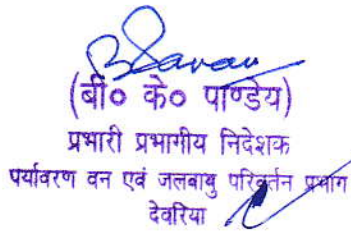 (बी० के० पाण्डेय)
प्रभारी प्रभागीय निदेशक
पर्यावरण वन एवं जलबायु परिवर्तन प्रभाग
देवरिया